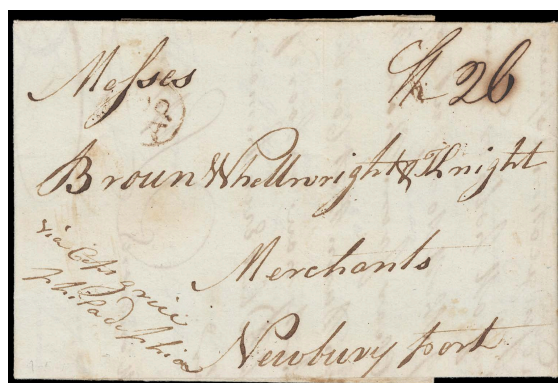 Messes 26
Broun Whellwright & Knight
Merchants
Newbury port
via
philadelphia